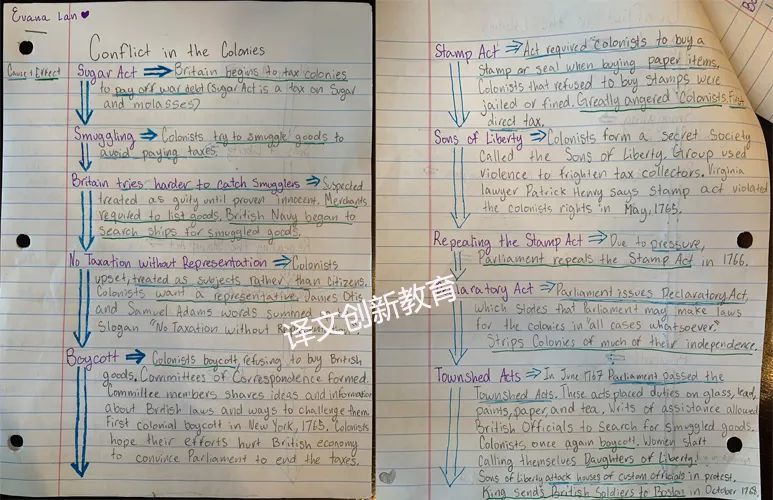 Evana Lan
Conflict in the Colonies
Cause + Effect
Sugar Act ⇒ Britain begins to tax colonies
to pay off war debt (Sugar Act is a tax on Sugar
and molasses)
Smuggling ⇒ Colonists try to smuggle goods to
avoid paying taxes.
Britain tries harder to catch Smugglers ⇒ Suspected
treated as guilty until proven innocent. Merchants
required to list goods. British Navy began to
search ships for smuggled goods.
No Taxation without Representation ⇒ Colonists
upset, treated as subjects rather than Citizens.
Colonists want a representative. James Otis
and Samuel Adams words summed
Slogan "No Taxation without
Boycott ⇒ Colonists boycott, refusing to buy British
goods. Committees of Correspondence formed.
Committee members shares ideas and information
about British laws and ways to challenge them.
First colonial boycott in New York, 1765. Colonists
hope their efforts hurt British economy
to convince Parliament to end the taxes.
Stamp Act ⇒ Act required colonists to buy a
Stamp or seal when buying paper items.
Colonists that refused to buy stamps were
jailed or fined. Greatly angered Colonists. First
direct tax.
Sons of Liberty ⇒ Colonists form a secret Society
Called the Sons of Liberty. Group used
violence to frighten tax collectors. Virginia
lawyer Patrick Henry says stamp act violated
the colonists rights in May, 1765.
Repealing the Stamp Act ⇒ Due to pressure,
Parliament repeals the Stamp Act in 1766.
Declaratory Act ⇒ Parliament issues Declaratory Act,
which states that Parliament may make laws
for the colonies in "all cases whatsoever."
Strips Colonies of much of their independence.
Townshed Acts ⇒ In June 1767 Parliament passed the
Townshed Acts. These acts placed duties on glass, lead,
paints, paper, and tea. Writs of assistance allowed
British Officials to Search for smuggled goods.
Colonists, once again boycott. Women start
calling themselves Daughters of Liberty.
Sons of Liberty attack houses of custom officials in protest.
King sends British Soldiers to Boston in October 1768
译文创新教育